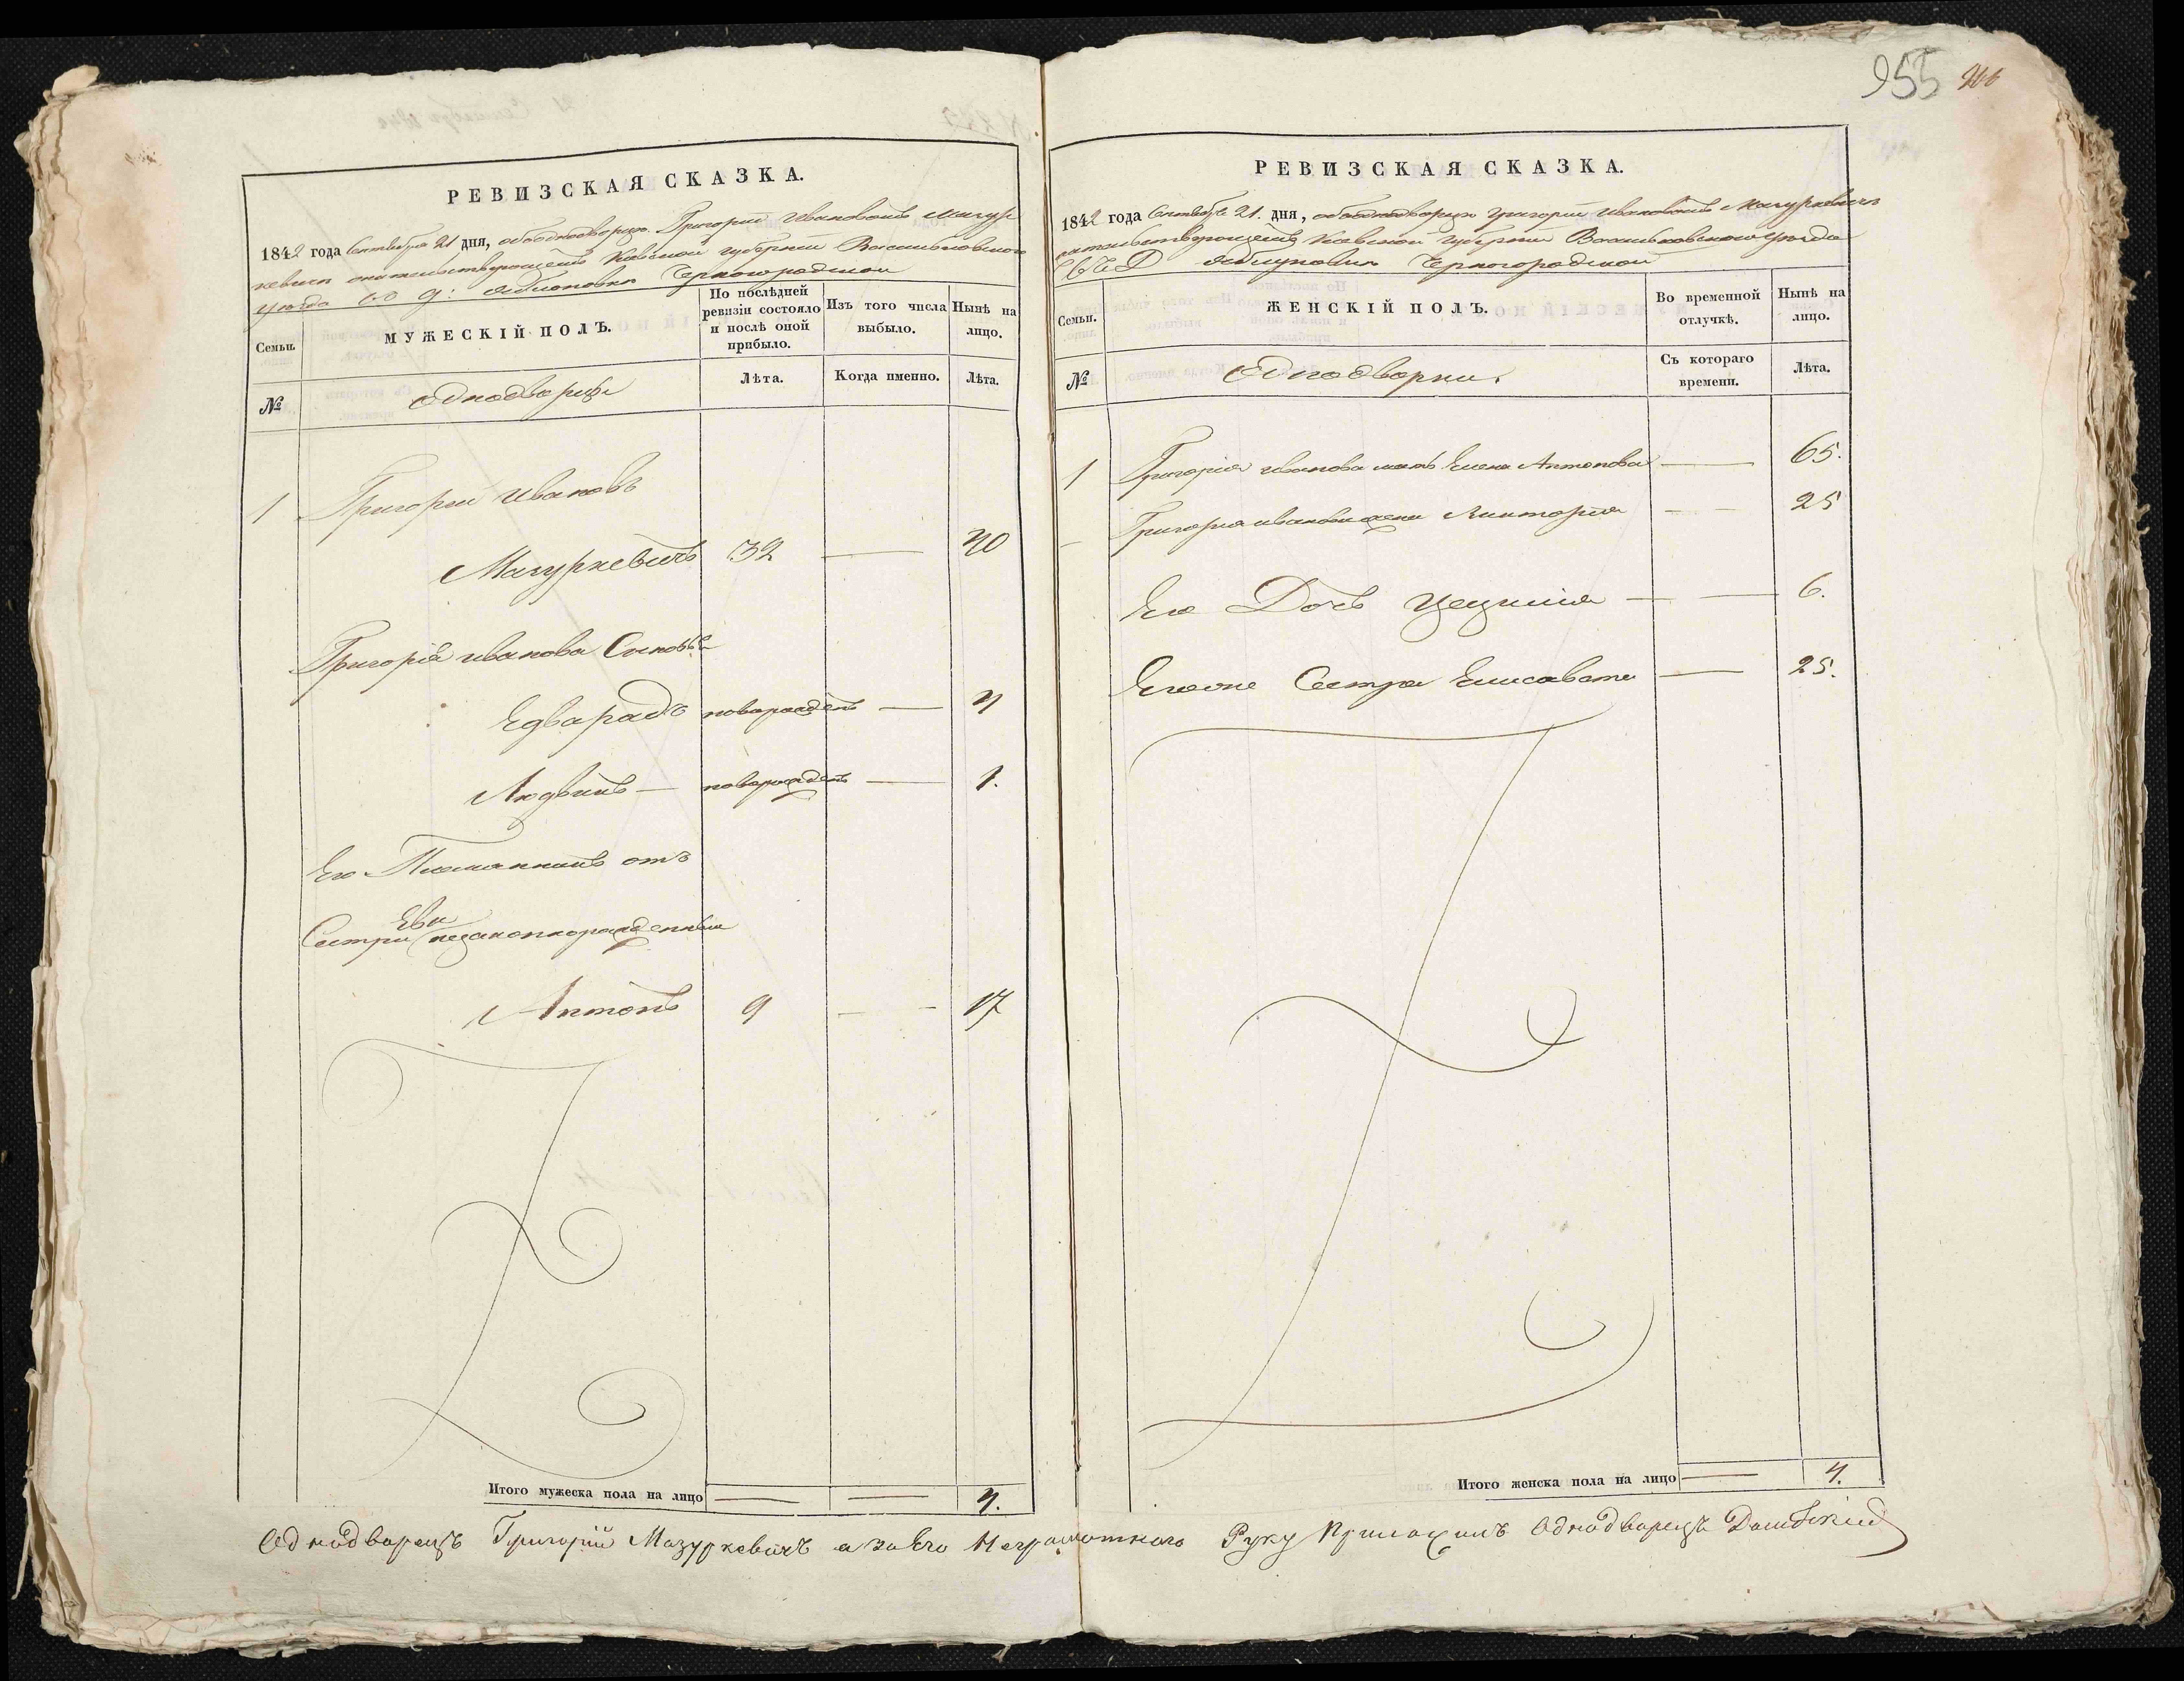 955
РЕВИЗСКАЯ СКАЗКА.
1842 года Сентября 21 дня, ободнодворцѣ Григории Ивановомъ Мазур
кевичѣ жительствующемъ Киевской губернии Васильковского
уѣзда въ д:
Семьи.
МУЖЕСКІЙ ПОЛЪ.
По послѣдней ревизіи состояло и послѣ оной прибыло.
Изъ того числа выбыло.
Нынѣ на лицо.
№
Однодворцы
Лѣта.
Когда именно.
Лѣта.
1 Григорий Ивановъ
Мазуркевичъ 32 — 40
Григорія Иванова Сыновья
Едварадъ новорожденъ — 4
Людвикъ — новорожденъ — 1.
Его Племянникъ отъ
Еви
Сестри незаконнорожденный
Антонъ 9 — - 17
Итого мужеска пола на лицо — — 4.
РЕВИЗСКАЯ СКАЗКА.
1842 года Сентября 21. дня, ободнодворцѣ Григории Ивановомъ Мазуркевичѣ
жительствующемъ Киевской губернии Васильковского уѣзда
Семьи.
ЖЕНСКІЙ ПОЛЪ.
Во временной отлучкѣ.
Нынѣ на лицо.
№
Однодворки.
Съ котораго времени.
Лѣта.
1 Григорія Иванова мать Елена Антонова — 65.
— Григорія Иванова жена Виктория — — 25
Его Дочь Цецилия — — 6.
Егоже Сестра Елисавета — 25.
Итого женска пола на лицо — 4.
Однодворецъ Григорий Мазуркевичъ а за его Неграмотного Руку Приложилъ Однодворецъ